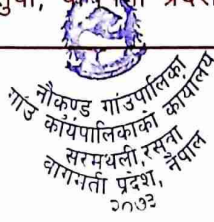 नौकुण्ड गांउपालिका
गाउं कार्यपालिकाको कार्यालय
सरमथली, रसुवा
वागमती प्रदेश, नेपाल
२०७३